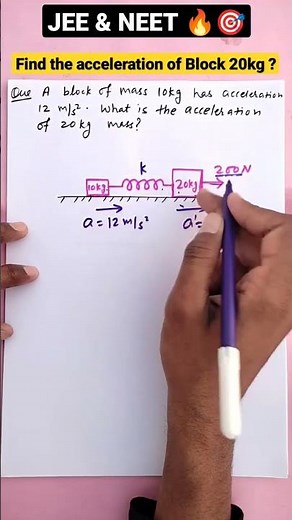 JEE & NEET 🔥🎯
Find the acceleration of Block 20kg ?
Que A block of mass 10kg has acceleration
12 m/s². What is the acceleration
of 20kg mass?
k
200N
10kg
20kg
a = 12 m/s²
a' =